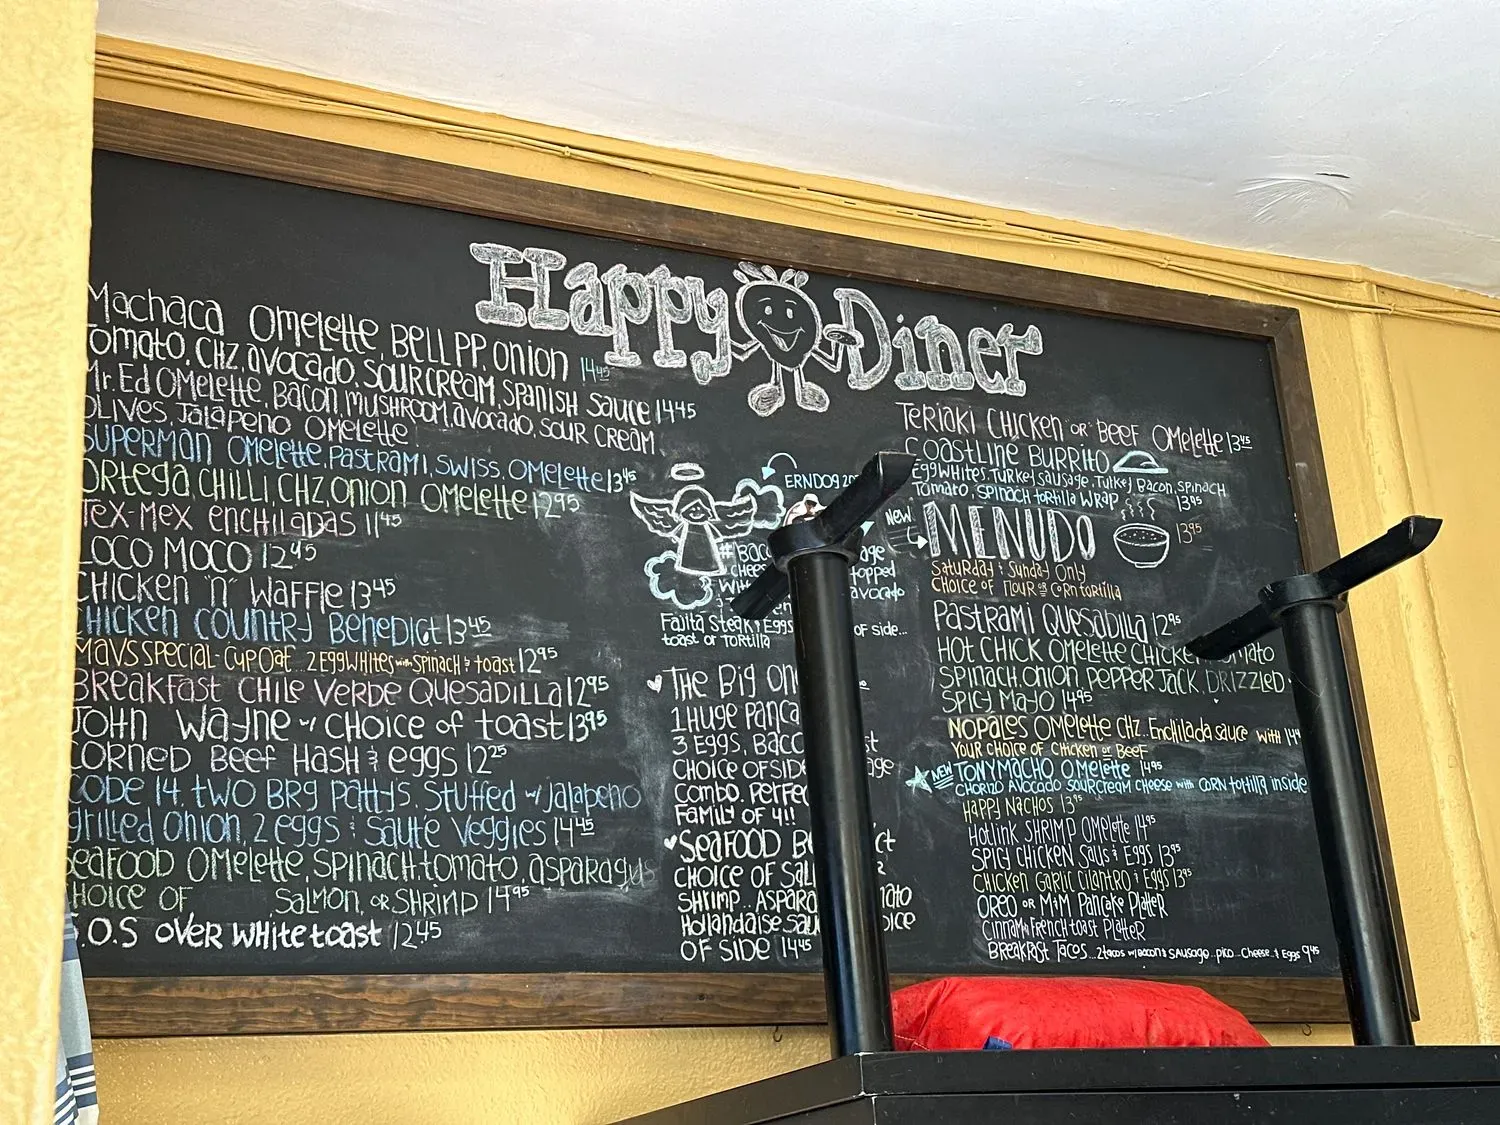 Happy Diner
Machaca Omelette, Bell PP, Onion 14
Tomato, CHZ, avocado, sour cream, Spanish sauce 14 45
Mr. Ed Omelette, Bacon, mushroom, avocado, sour cream
Olives, Jalapeno Omelette
Superman Omelette, Pastrami, Swiss, Omelette 13 45
Ortega, chilli, chz, onion omelette 12 95
Tex-Mex enchiladas 11 45
Loco Moco 12 45
Chicken "n" Waffle 13 45
Chicken Country Benedict 13 45
Mavs Special - Cup Oat... 2 Egg Whites with spinach & toast 12 95
Breakfast Chile Verde Quesadilla 12 95
John Wayne w/ choice of toast 13 95
Corned Beef Hash & eggs 12 25
Code 14, two BRG Pattys, Stuffed w/ jalapeno
grilled onion, 2 eggs & Saute Veggies 14 45
Seafood Omelette, Spinach, tomato, asparagus
choice of Salmon, or Shrimp 14 95
S.O.S over white toast 12 45
ERNDOG
Fajita Steak & Eggs of side...
toast or tortilla
The Big On
1 Huge Panca
3 Eggs, Bac
choice of side
combo, Perfec
Family of 4!!
Seafood B ct
choice of Sal
shrimp.. Aspara
Hollandaise Sau
of side 14 45
Teriaki Chicken or Beef Omelette 13 45
Coastline Burrito
Egg whites, Turkey sausage, Turkey Bacon, spinach
Tomato, spinach tortilla wrap 13 95
New
MENUDO 13 95
Saturday & Sunday Only
choice of flour or corn tortilla
Pastrami Quesadilla 12 95
Hot Chick Omelette Chicken
Spinach, onion, pepper Jack, drizzled
Spicy Mayo 14 95
Nopales Omelette chz.. Enchilada sauce with
your choice of chicken or beef
New Tonymacho Omelette 14 95
Chorizo Avocado sour cream cheese with corn tortilla inside
Happy Nachos 13 95
Hotlink Shrimp Omelette 14 95
Spicy Chicken Saus & Eggs 13 95
Chicken Garlic Cilantro & Eggs 13 95
Oreo or M&M Pancake Platter
Cinnamn French toast Platter
Breakfast Tacos... 2 tacos w/ bacon & sausage.. pico... cheese.. & Eggs 9 45